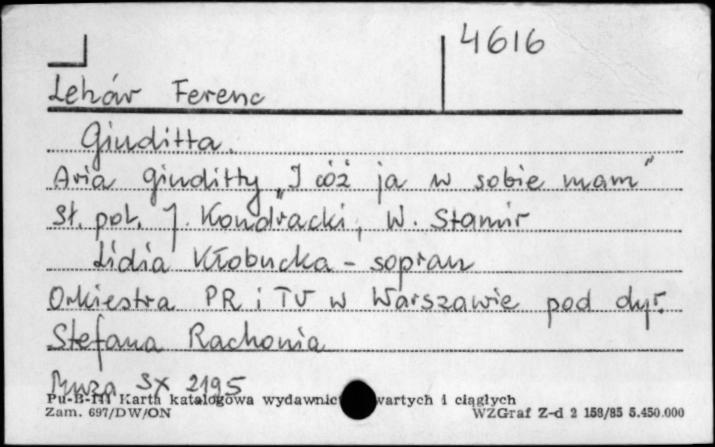 4616
Lehár Ferenc
Giuditta.
Aria Giuditty „I cóż ja w sobie mam"
sł. pol. J. Kondracki, W. Stamir
Lidia Kłobucka - sopran
Orkiestra PR i TV w Warszawie pod dyr.
Stefana Rachonia
Muza SX 2195
Pu-B-III Karta katalogowa wydawnic wartych i ciągłych
Zam. 697/DW/ON WZGraf Z-d 2 158/85 5.450.000